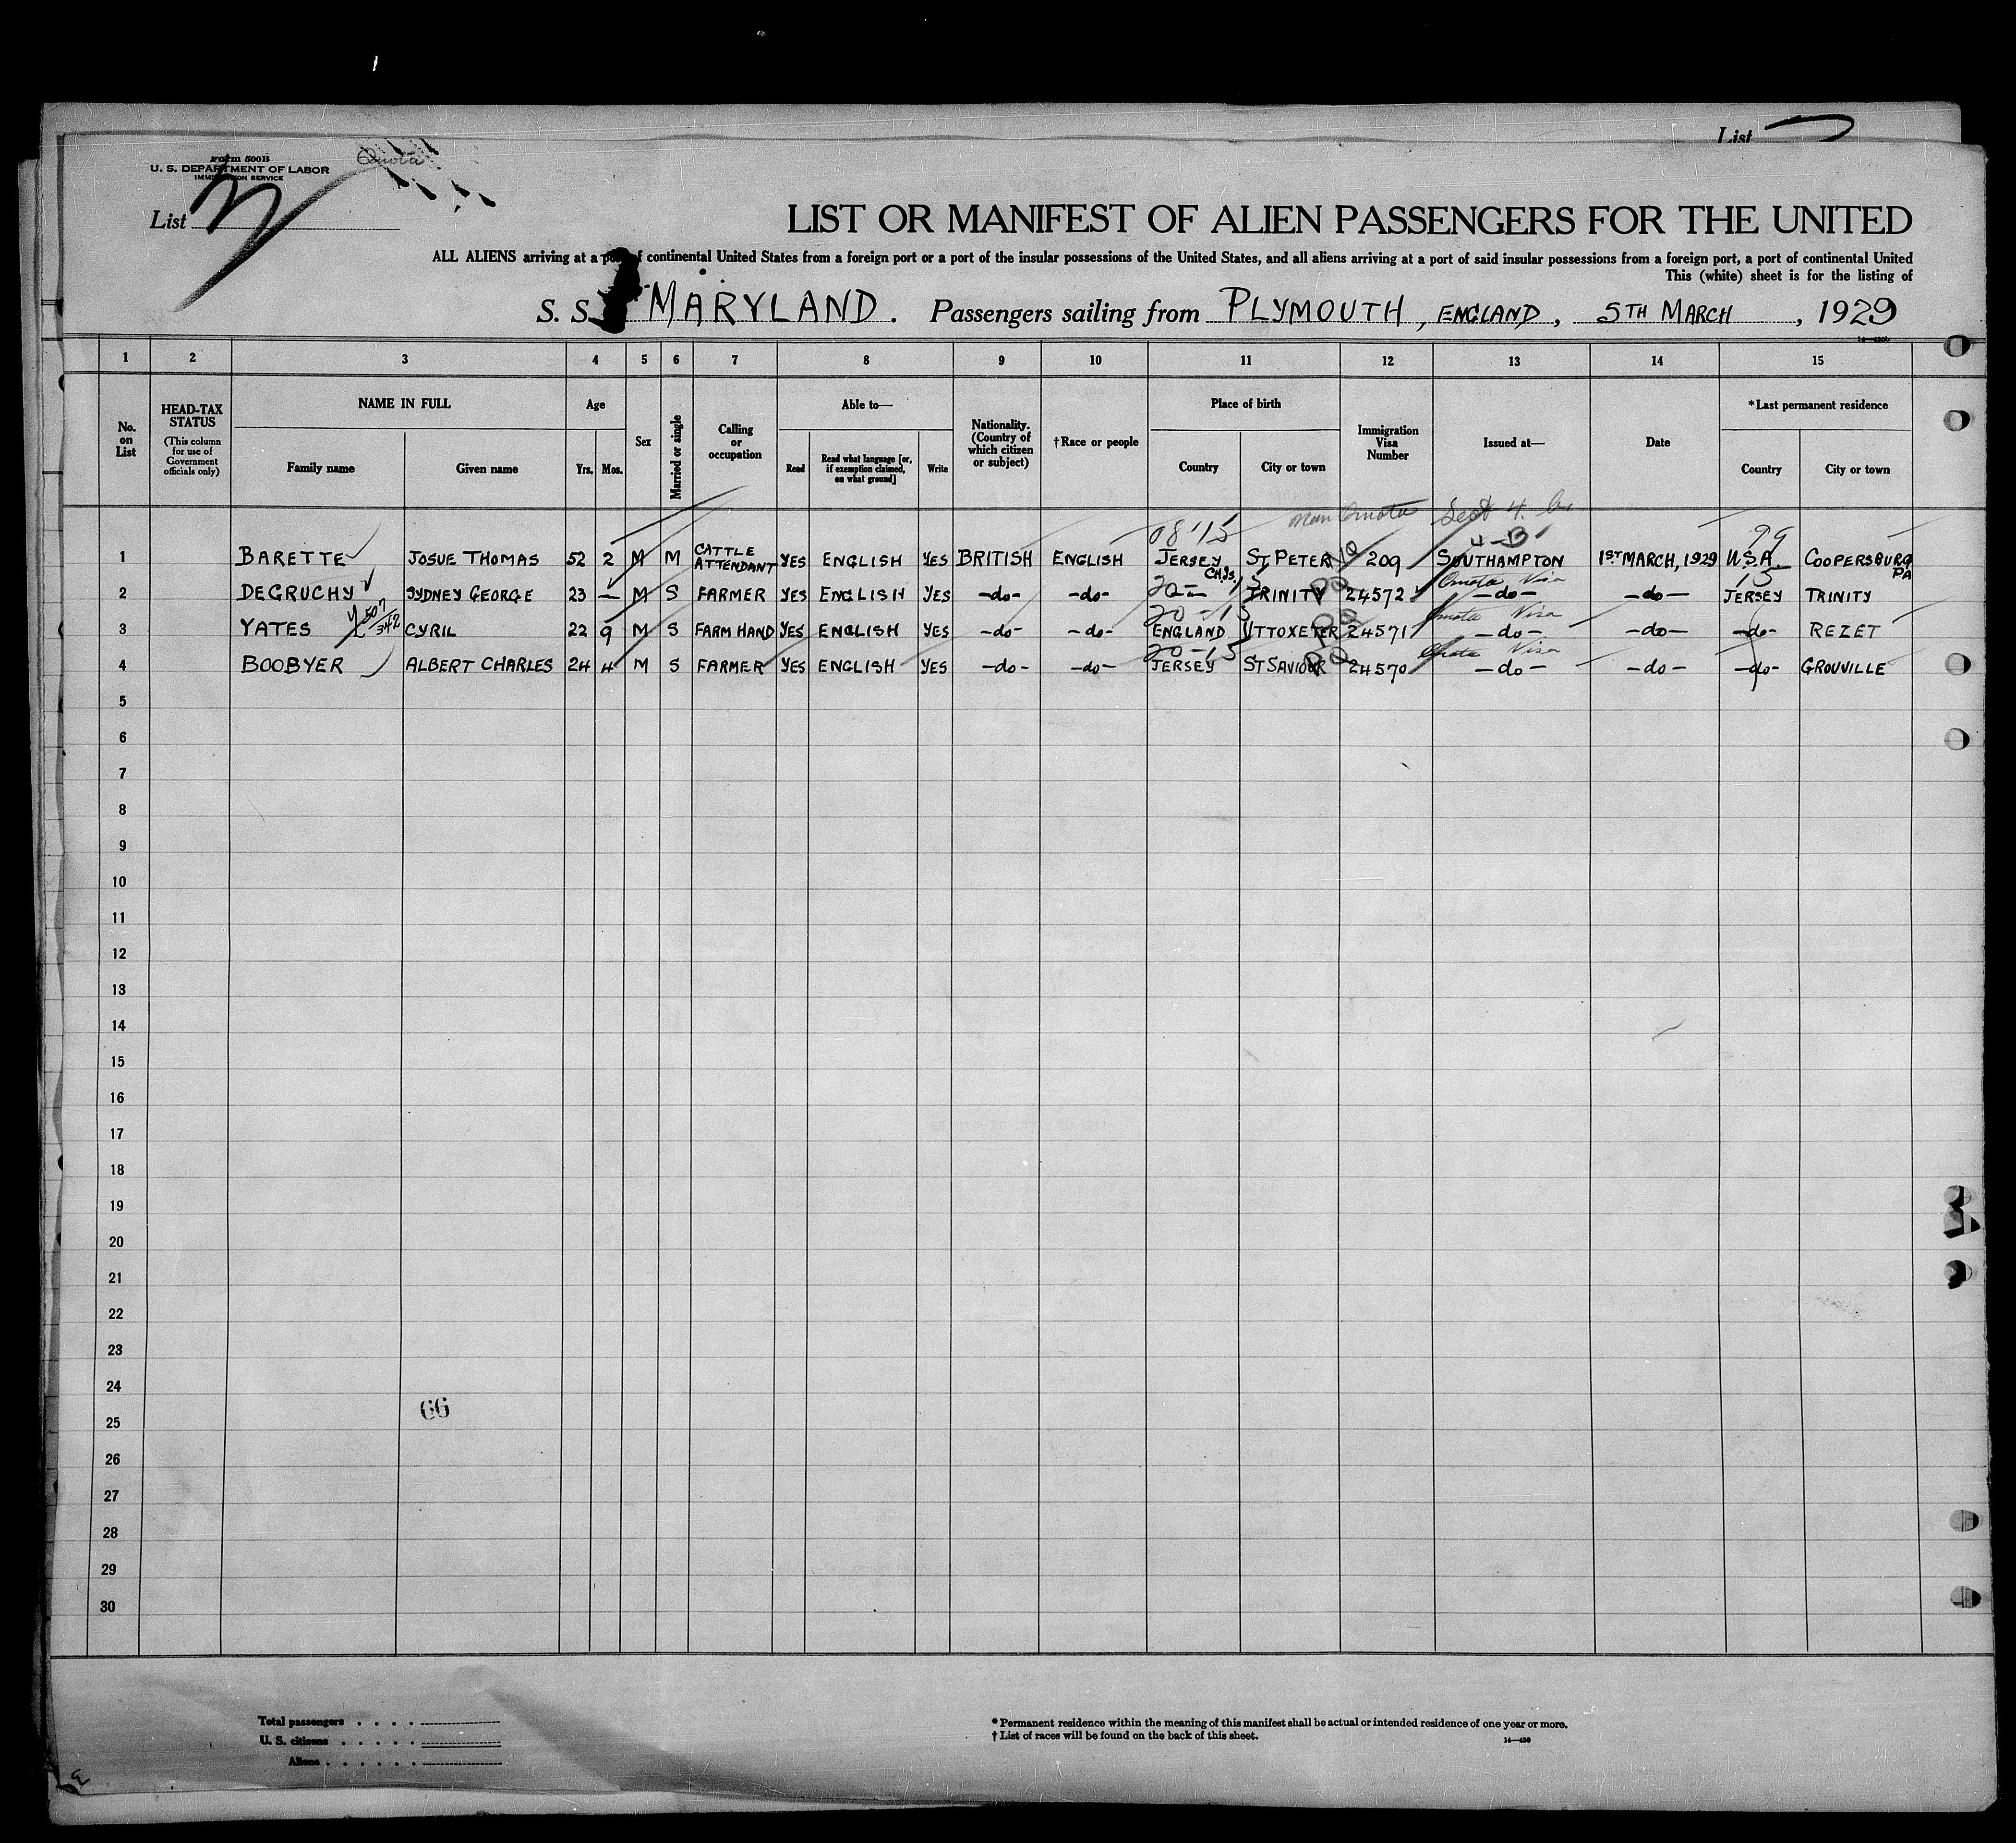 List
Form 500B
U. S. DEPARTMENT OF LABOR
IMMIGRATION SERVICE
Quota
List
LIST OR MANIFEST OF ALIEN PASSENGERS FOR THE UNITED
ALL ALIENS arriving at a port of continental United States from a foreign port or a port of the insular possessions of the United States, and all aliens arriving at a port of said insular possessions from a foreign port, a port of continental United
This (white) sheet is for the listing of
S. S. MARYLAND. Passengers sailing from PLYMOUTH, ENGLAND, 5TH MARCH, 1929
1 2 3 4 5 6 7 8 9 10 11 12 13 14 15
No. on List
HEAD-TAX STATUS (This column for use of Government officials only)
NAME IN FULL
Family name Given name
Age
Yrs. Mos.
Sex
Married or single
Calling or occupation
Able to—
Read Read what language [or, if exemption claimed, on what ground] Write
Nationality. (Country of which citizen or subject)
†Race or people
Place of birth
Country City or town
Immigration Visa Number
Issued at—
Date
*Last permanent residence
Country City or town
Non Quota Sect 4.
08'15 4-B 99
1 BARETTE JOSUE THOMAS 52 2 M M CATTLE ATTENDANT YES ENGLISH YES BRITISH ENGLISH JERSEY CH.IS. ST PETER 209 SOUTHAMPTON 1ST MARCH, 1929 U.S.A. COOPERSBURG PA
Quota Visa 15
2 DEGRUCHY SYDNEY GEORGE 23 — M S FARMER YES ENGLISH YES -do- -do- TRINITY 24572 -do- -do- JERSEY TRINITY
20-15 Quota Visa
3 YATES CYRIL 22 9 M S FARM HAND YES ENGLISH YES -do- -do- ENGLAND UTTOXETER 24571 -do- -do- -do- REZET
20-15 Quota Visa
4 BOOBYER ALBERT CHARLES 24 4 M S FARMER YES ENGLISH YES -do- -do- JERSEY ST SAVIOUR 24570 -do- -do- -do- GROUVILLE
5
6
7
8
9
10
11
12
13
14
15
16
17
18
19
20
21
22
23
24
66
25
26
27
28
29
30
Total passengers . . . .
U. S. citizens . . . . .
Aliens . . . . . .
* Permanent residence within the meaning of this manifest shall be actual or intended residence of one year or more.
† List of races will be found on the back of this sheet.